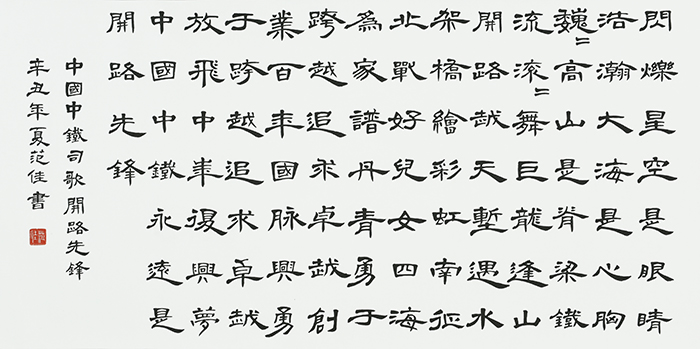 閃爍星空是眼睛
浩瀚大海是心胸
巍〻高山是脊梁鐵
流滾〻舞巨龍逢山
開路越天塹遇水
架橋繪彩虹南征
北戰好兒女四海
為家譜丹青勇于
跨越追求卓越創
業百年國脉興勇
于跨越追求卓越
放飛中華復興夢
中國中鐵永遠是
開路先鋒
中國中鐵司歌開路先鋒
辛丑年夏范佳書